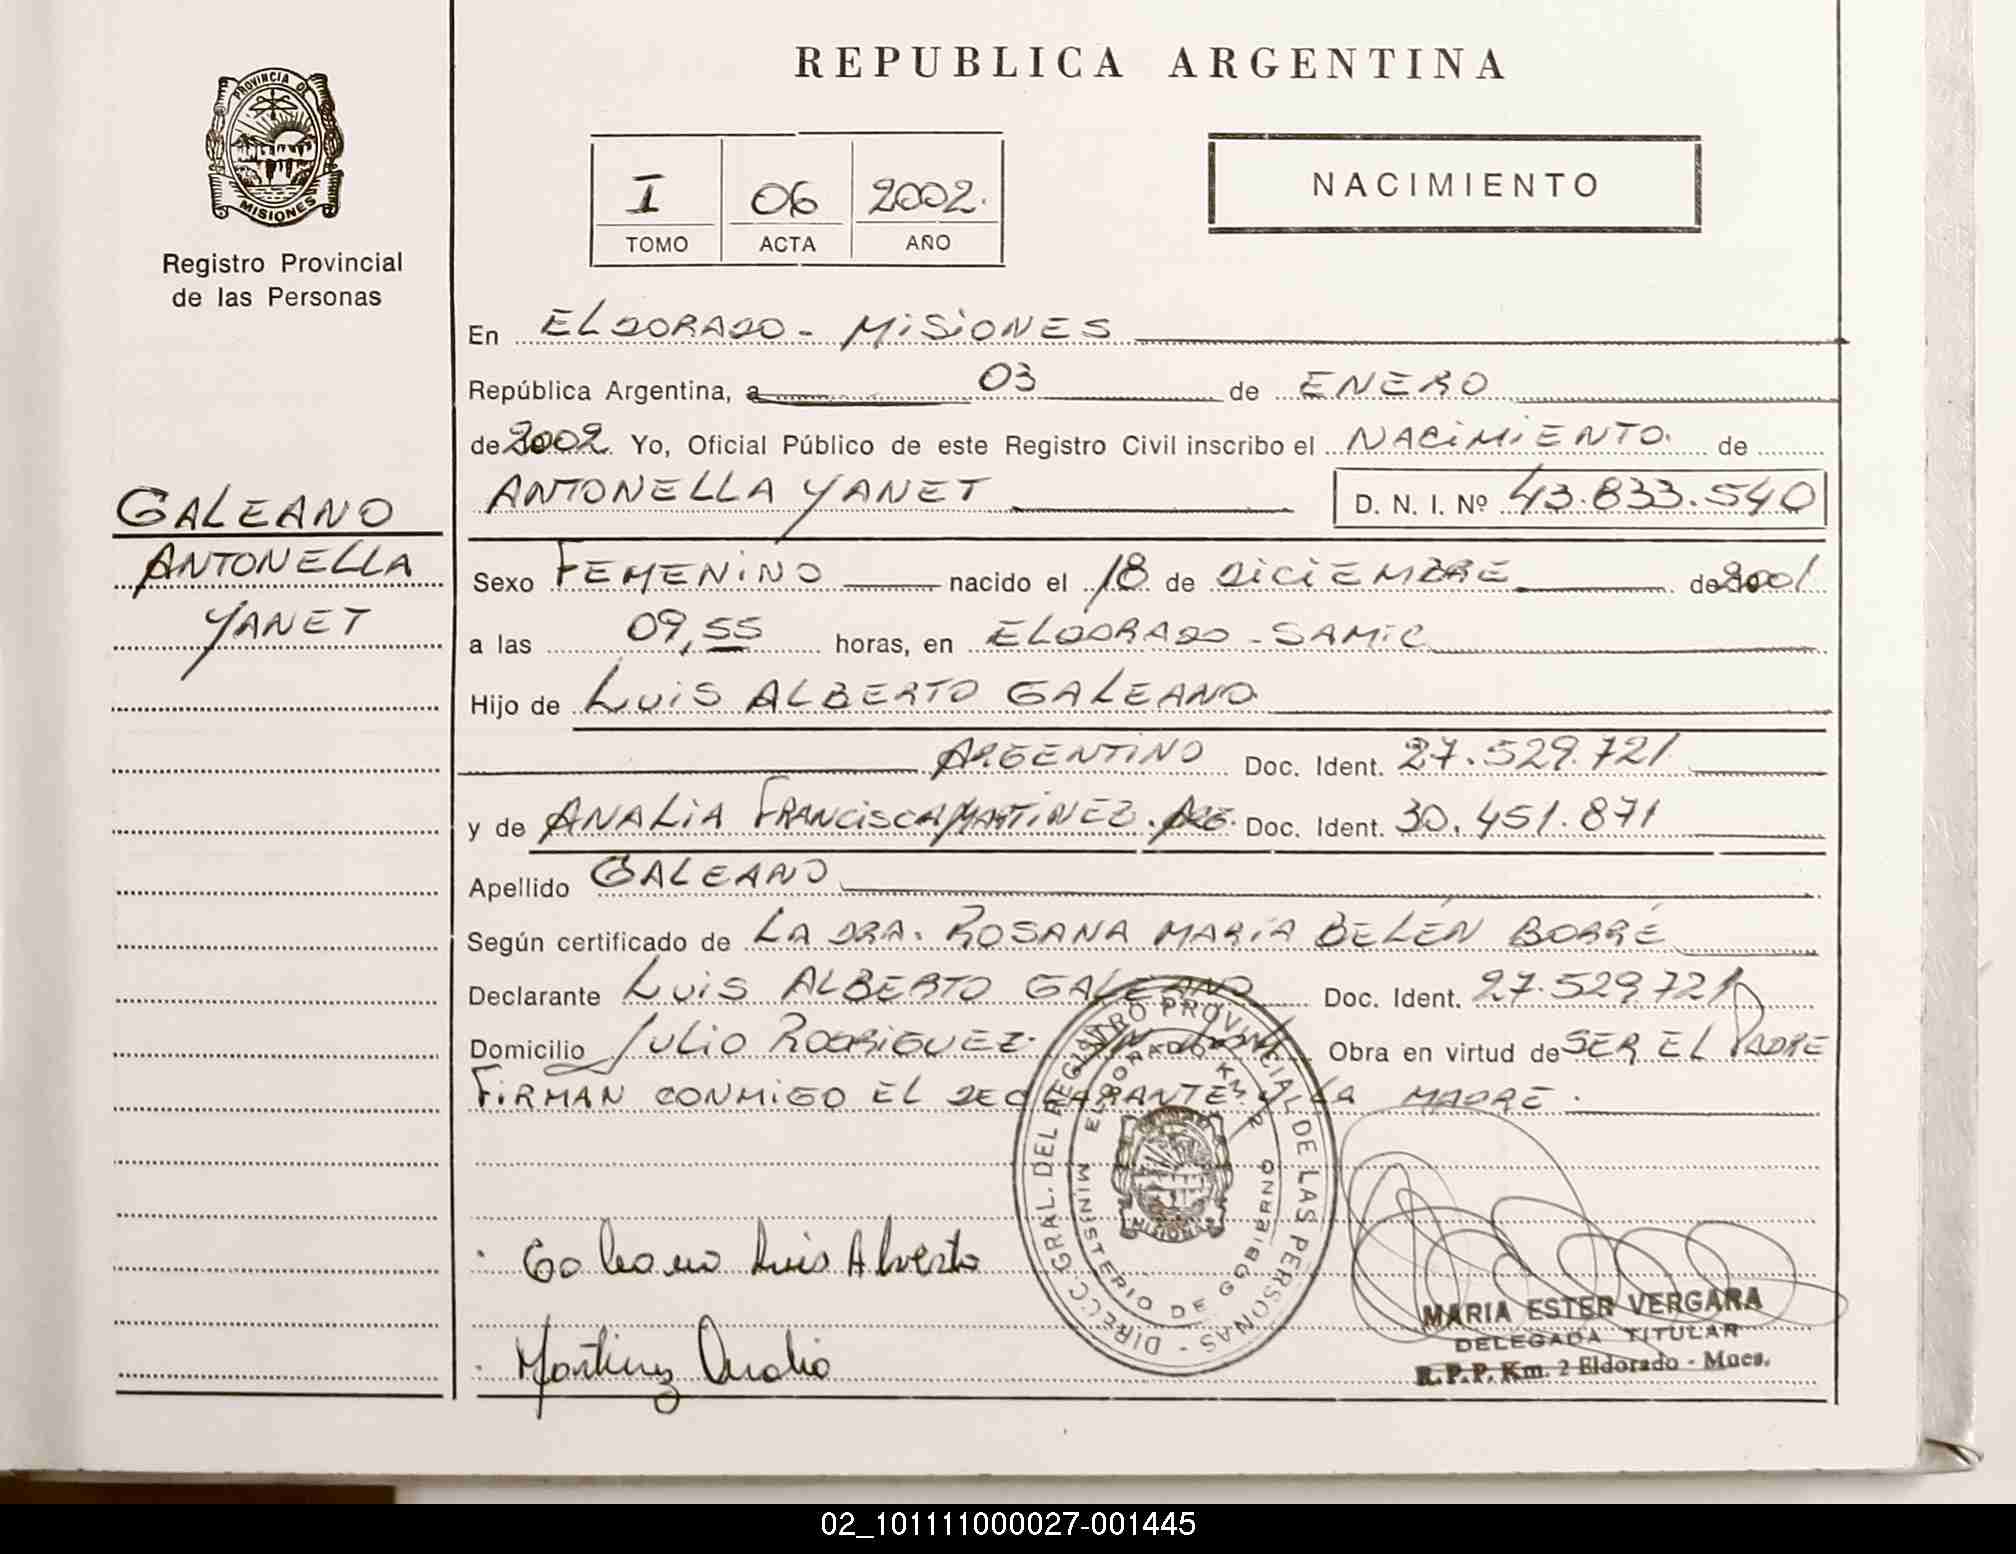 REPUBLICA ARGENTINA
PROVINCIA DE
MISIONES
Registro Provincial
de las Personas
I 06 2002.
TOMO ACTA AÑO
NACIMIENTO
GALEANO
ANTONELLA
YANET
En ELDORADO - MISIONES
República Argentina, a 03 de ENERO
de 2002. Yo, Oficial Público de este Registro Civil inscribo el NACIMIENTO. de
ANTONELLA YANET D. N. I. Nº 43.833.540
Sexo FEMENINO nacido el 18 de DICIEMBRE de 2001
a las 09,55 horas, en ELDORADO - SAMIC
Hijo de LUIS ALBERTO GALEANO
ARGENTINO Doc. Ident. 27.529.721
y de ANALIA FRANCISCA MARTINEZ. ARG. Doc. Ident. 30.451.871
Apellido GALEANO
Según certificado de LA DRA. ROSANA MARÍA BELÉN BORRÉ
Declarante LUIS ALBERTO GALEANO Doc. Ident. 27.529.721
Domicilio JULIO RODRIGUEZ. Obra en virtud de SER EL PADRE
FIRMAN CONMIGO EL DECLARANTE Y LA MADRE.
DIRECC. GRAL. DEL REGISTRO PROVINCIAL DE LAS PERSONAS -
ELDORADO KM. 2
MINISTERIO DE GOBIERNO
MISIONES
Galeano Luis Alverto
Martinez Analia
MARIA ESTER VERGARA
DELEGADA TITULAR
R.P.P. Km. 2 Eldorado - Mnes.
02_101111000027-001445